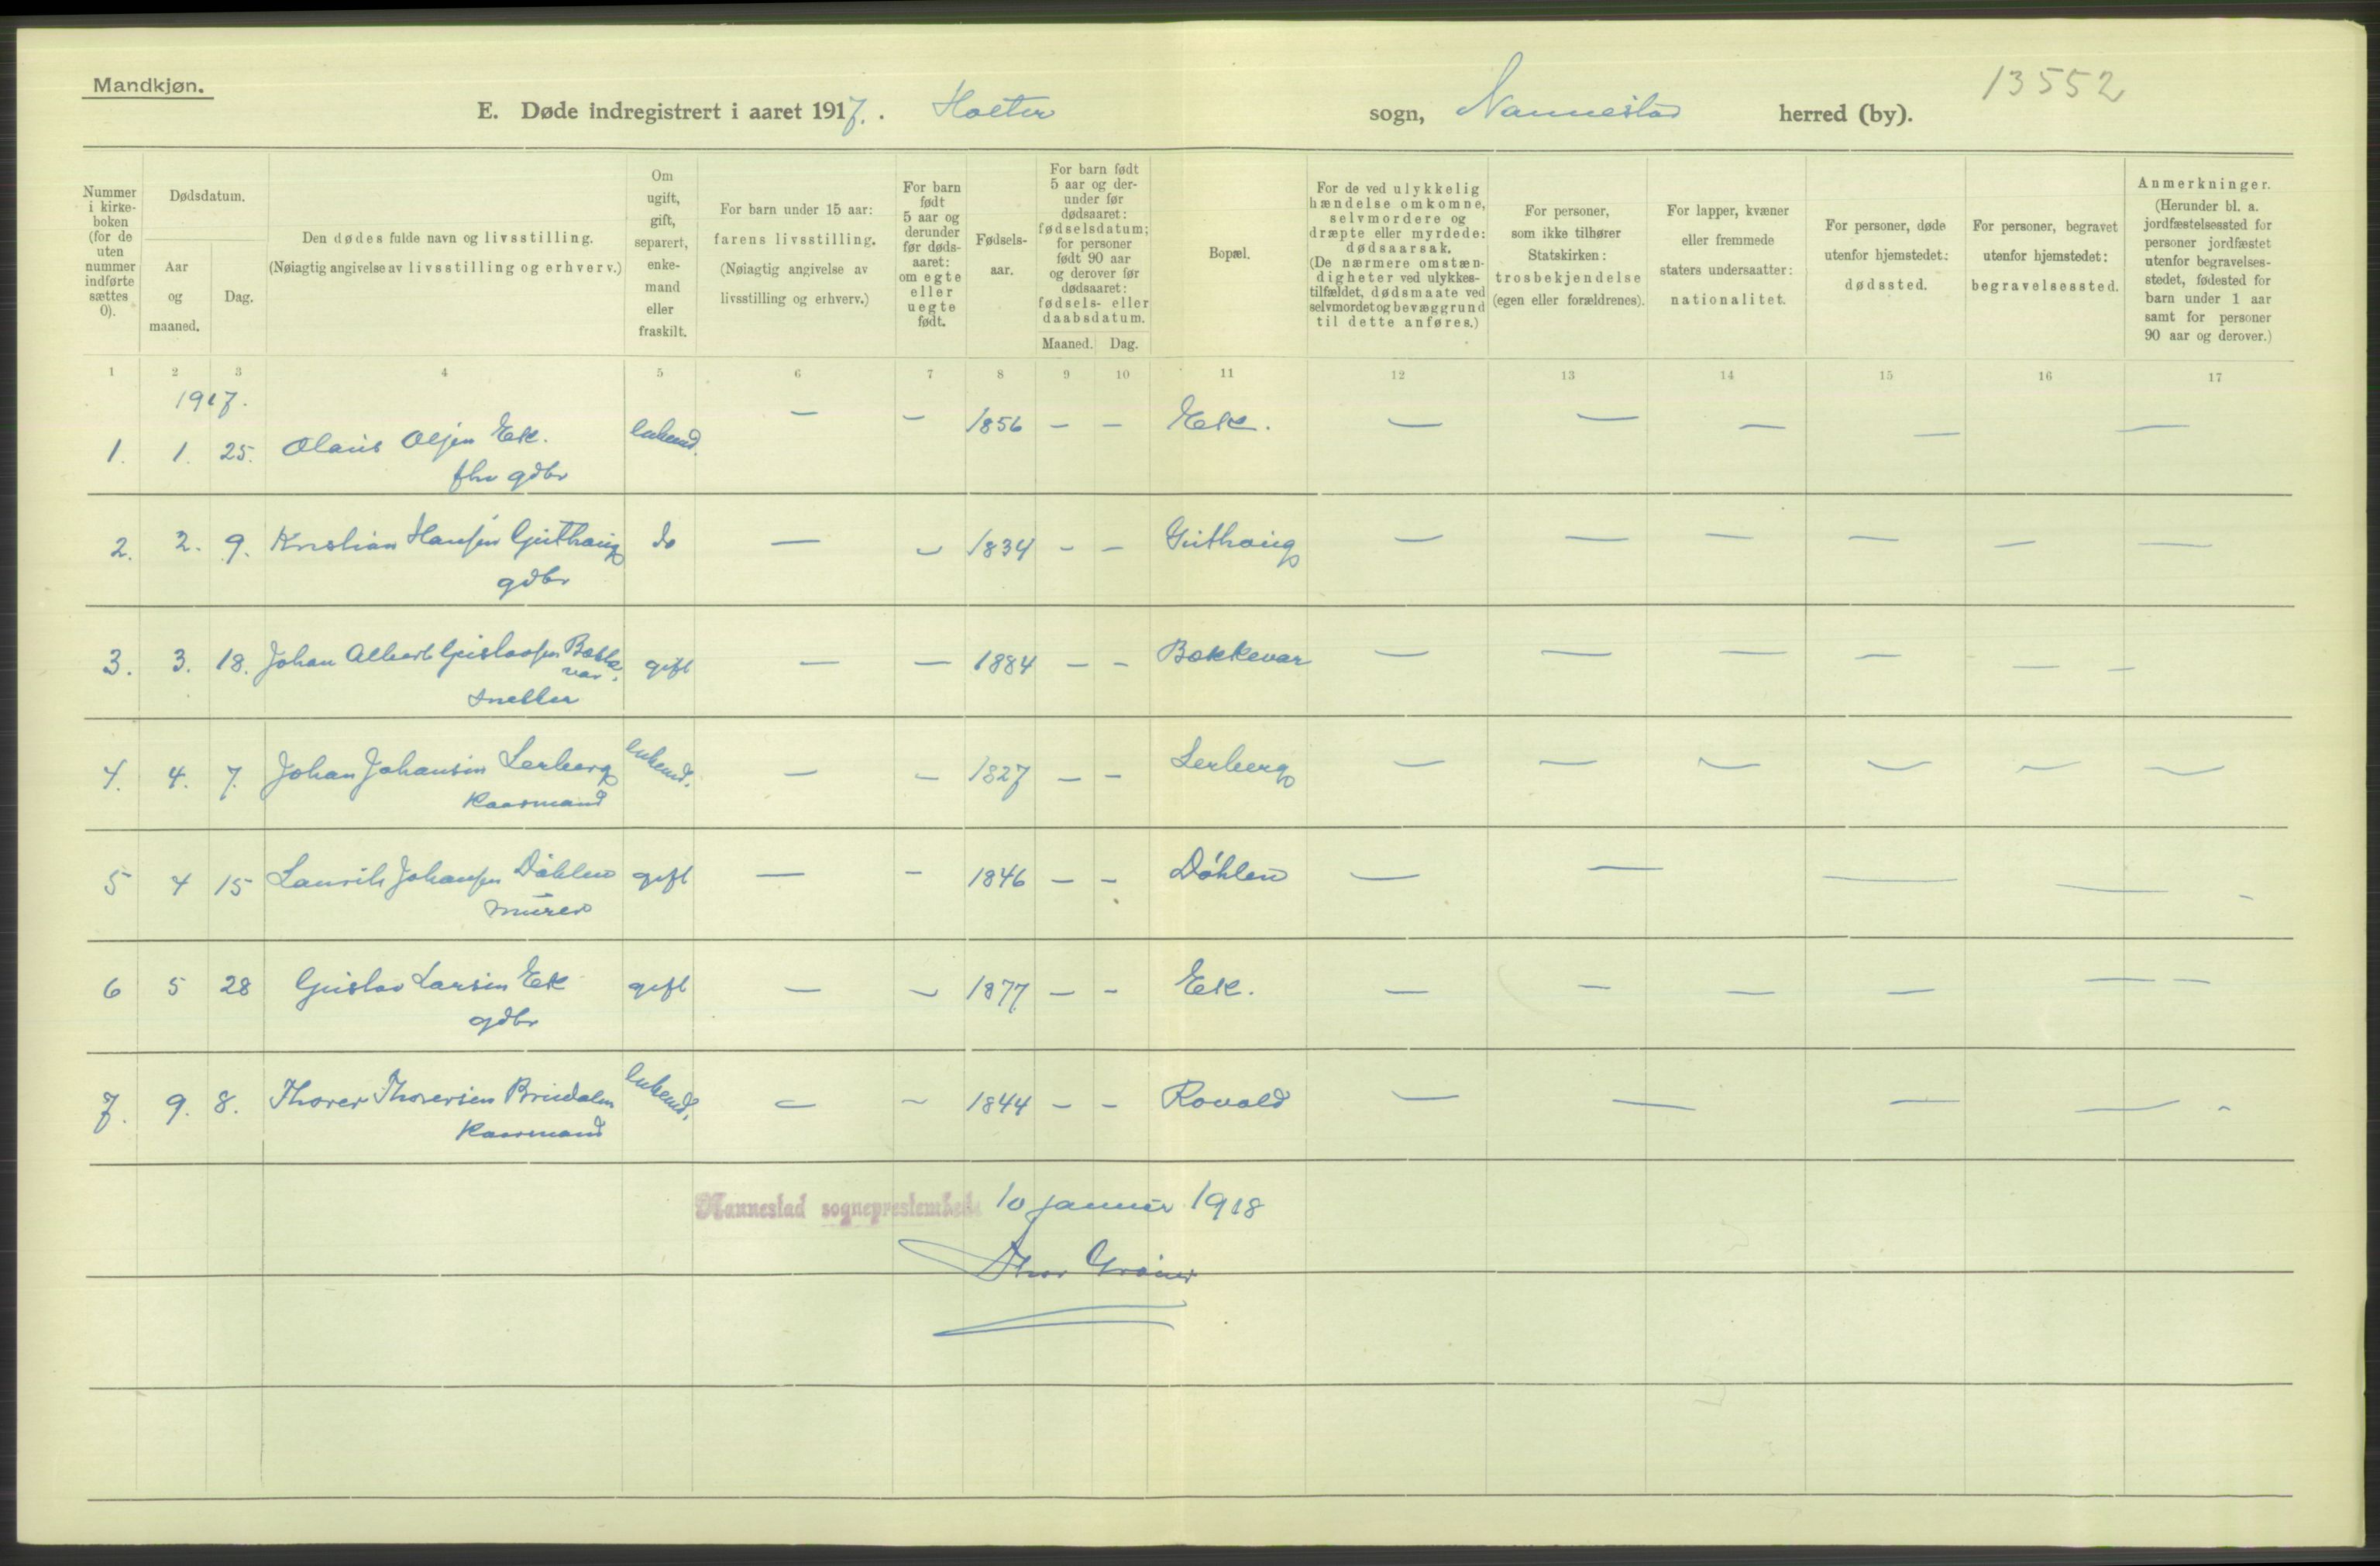 Mandkjøn.
13552
E. Døde indregistrert i aaret 1917. Holter sogn, Nannestad herred (by).
Nummer i kirke- boken (for de uten nummer indførte sættes 0).
Dødsdatum.
Aar og maaned.
Dag.
Den dødes fulde navn og livsstilling.
(Nøiagtig angivelse av livsstilling og erhverv.)
Om ugift, gift, separert, enke- mand eller fraskilt.
For barn under 15 aar: farens livsstilling. (Nøiagtig angivelse av livsstilling og erhverv.)
For barn født 5 aar og derunder før døds- aaret: om egte eller uegte født.
Fødsels- aar.
For barn født 5 aar og der- under før dødsaaret: fødselsdatum; for personer født 90 aar og derover før dødsaaret: fødsels- eller daabsdatum.
Maaned. Dag.
Bopæl.
For de ved ulykkelig hændelse omkomne, selvmordere og dræpte eller myrdede: dødsaarsak. (De nærmere omstæn- digheter ved ulykkes- tilfældet, dødsmaate ved selvmordet og bevæggrund til dette anføres.)
For personer, som ikke tilhører Statskirken: trosbekjendelse (egen eller forældrenes).
For lapper, kvæner eller fremmede staters undersaatter: nationalitet.
For personer, døde utenfor hjemstedet: dødssted.
For personer, begravet utenfor hjemstedet: begravelsessted.
Anmerkninger. (Herunder bl. a. jordfæstelsessted for personer jordfæstet utenfor begravelses- stedet, fødested for barn under 1 aar samt for personer 90 aar og derover.)
1 2 3 4 5 6 7 8 9 10 11 12 13 14 15 16 17
1917.
1. 1. 25. Olaus Olsen Ek. enkemd. — — 1856 — — Ek. — — — — —
fhv gdbr
2. 2. 9. Kristian Hansen Guthaug do — — 1834 — — Guthaug — — — — — —
gdbr
3. 3. 18. Johan Albert Gustavsen Bække var. gift — — 1884 — — Bækkevar — — — — — —
sneller
4. 4. 7. Johan Johansen Lerberg enkemd. — — 1827 — — Lerberg — — — — — —
kaarmand
5 4 15 Laurits Johansen Døhlen gift — — 1846 — — Døhlen — — — — —
murer
6 5 28 Gustav Larsen Ek gift — — 1877 — — Ek. — — — — — —
gdbr
7. 9. 8. Thorer Thorersen Brudalen enkemd. — — 1844 — — Rovold — — — — —
kaarmand
Nannestad sogneprestembede 10 januar 1918
Thor